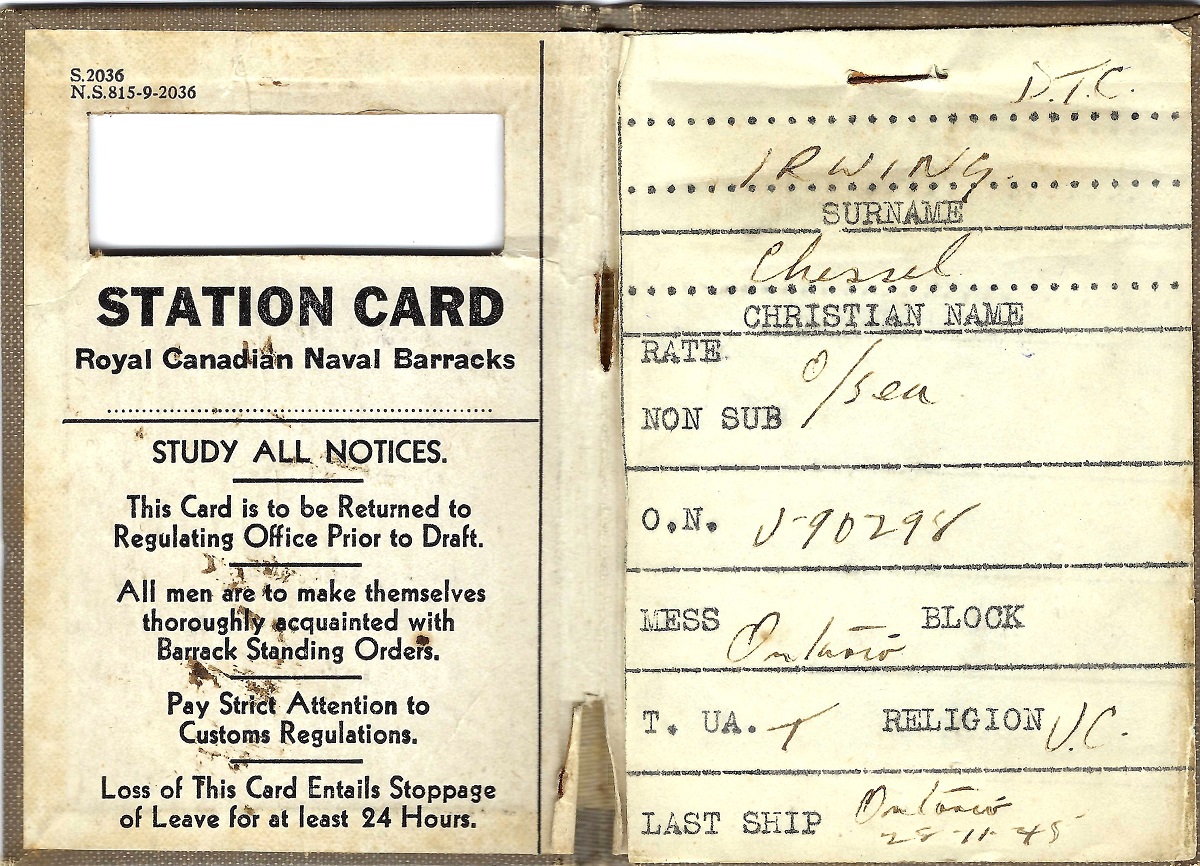 S.2036
N.S.815-9-2036
STATION CARD
Royal Canadian Naval Barracks
STUDY ALL NOTICES.
This Card is to be Returned to
Regulating Office Prior to Draft.
All men are to make themselves
thoroughly acquainted with
Barrack Standing Orders.
Pay Strict Attention to
Customs Regulations.
Loss of This Card Entails Stoppage
of Leave for at least 24 Hours.
D.T.C.
IRWING
SURNAME
Chessel
CHRISTIAN NAME
RATE O/sea
NON SUB
O.N. V-90298
MESS Ontario BLOCK
T. UA. T RELIGION U.C.
LAST SHIP Ontario
28-11-45